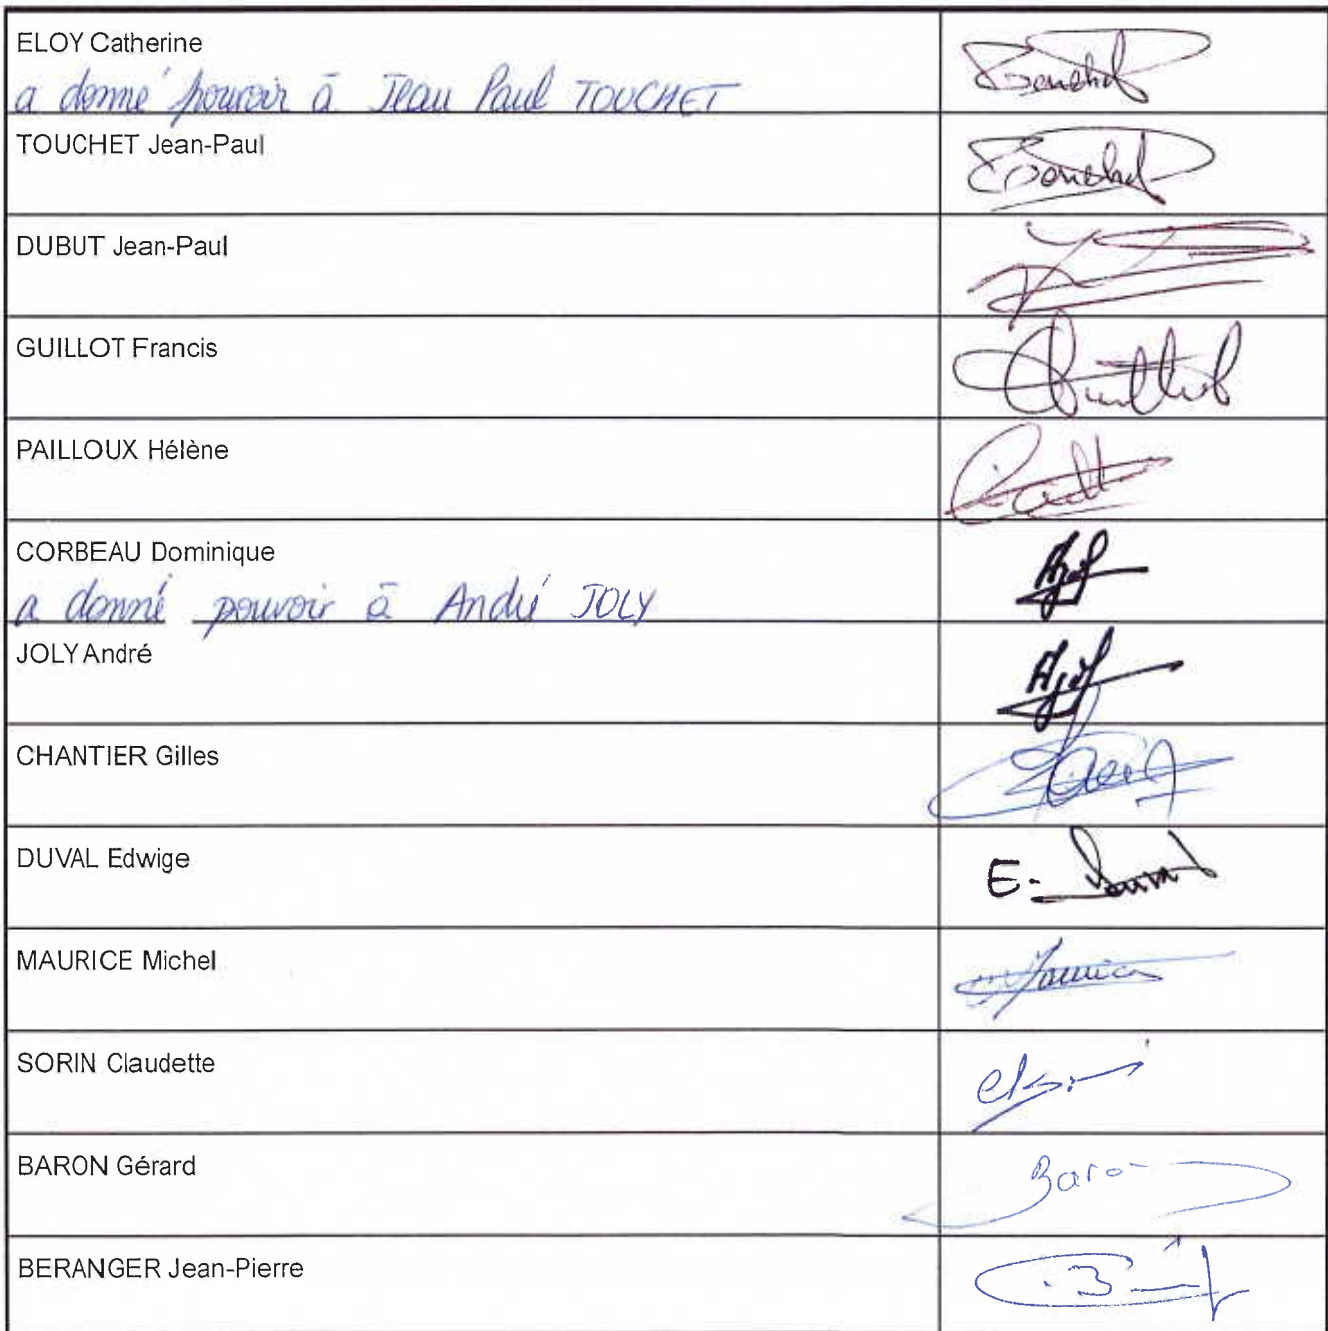 ELOY Catherine
a donné pouvoir à Jean Paul TOUCHET
TOUCHET Jean-Paul
DUBUT Jean-Paul
GUILLOT Francis
PAILLOUX Hélène
CORBEAU Dominique
a donné pouvoir à André JOLY
JOLY André
CHANTIER Gilles
DUVAL Edwige
E.
MAURICE Michel
SORIN Claudette
BARON Gérard
Baron
BERANGER Jean-Pierre